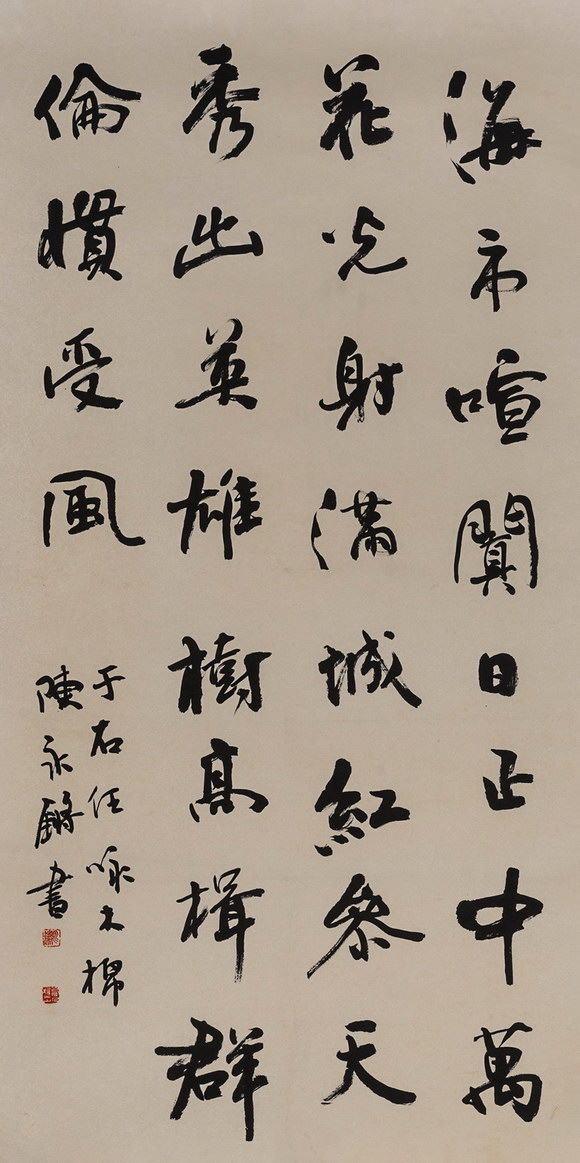 海市喧闐日正中萬
花光射滿城紅參天
秀出英雄樹高揖群
倫慣受風
于右任咏木棉
陳永鏘書